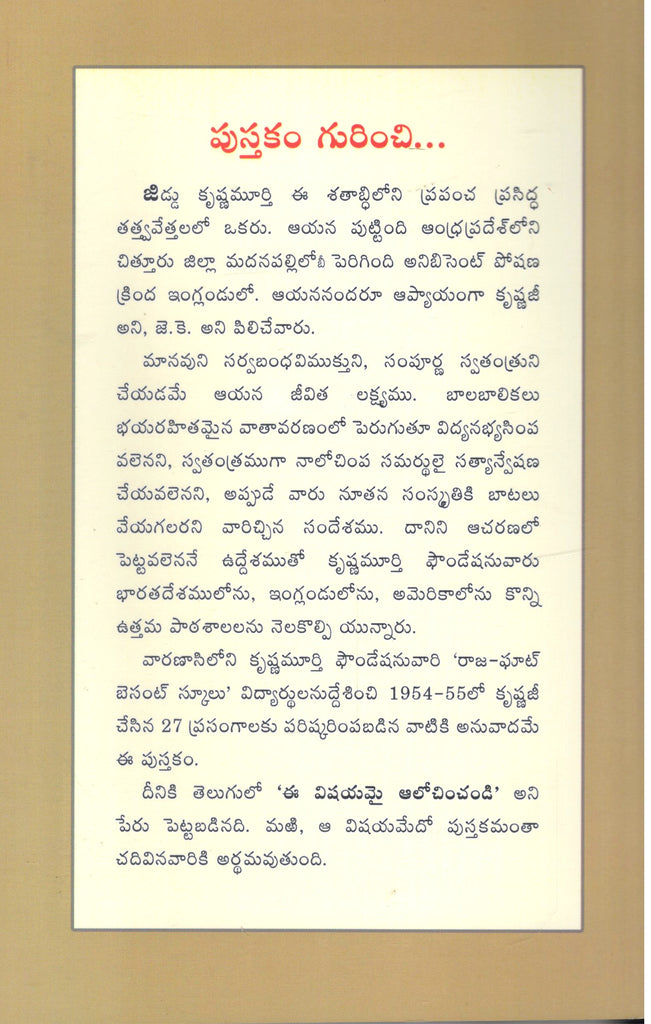 పుస్తకం గురించి...
జిడ్డు కృష్ణమూర్తి ఈ శతాబ్ధిలోని ప్రపంచ ప్రసిద్ధ
తత్త్వవేత్తలలో ఒకరు. ఆయన పుట్టింది ఆంధ్రప్రదేశ్‌లోని
చిత్తూరు జిల్లా మదనపల్లిలో పెరిగింది అనిబిసెంట్ పోషణ
క్రింద ఇంగ్లండులో. ఆయననందరూ ఆప్యాయంగా కృష్ణజీ
అని, జె.కె. అని పిలిచేవారు.
మానవుని సర్వబంధవిముక్తుని, సంపూర్ణ స్వతంత్రుని
చేయడమే ఆయన జీవిత లక్ష్యము. బాలబాలికలు
భయరహితమైన వాతావరణంలో పెరుగుతూ విద్యనభ్యసింప
వలెనని, స్వతంత్రముగా నాలోచింప సమర్థులై సత్యాన్వేషణ
చేయవలెనని, అప్పుడే వారు నూతన సంస్కృతికి బాటలు
వేయగలరని వారిచ్చిన సందేశము. దానిని ఆచరణలో
పెట్టవలెననే ఉద్దేశముతో కృష్ణమూర్తి ఫౌండేషనువారు
భారతదేశములోను, ఇంగ్లండులోను, అమెరికాలోను కొన్ని
ఉత్తమ పాఠశాలలను నెలకొల్పి యున్నారు.
వారణాసిలోని కృష్ణమూర్తి ఫౌండేషనువారి 'రాజ-ఘాట్
బెసంట్ స్కూలు' విద్యార్థులనుద్దేశించి 1954-55లో కృష్ణజీ
చేసిన 27 ప్రసంగాలకు పరిష్కరింపబడిన వాటికి అనువాదమే
ఈ పుస్తకం.
దీనికి తెలుగులో 'ఈ విషయమై ఆలోచించండి' అని
పేరు పెట్టబడినది. మఱి, ఆ విషయమేదో పుస్తకమంతా
చదివినవారికి అర్థమవుతుంది.